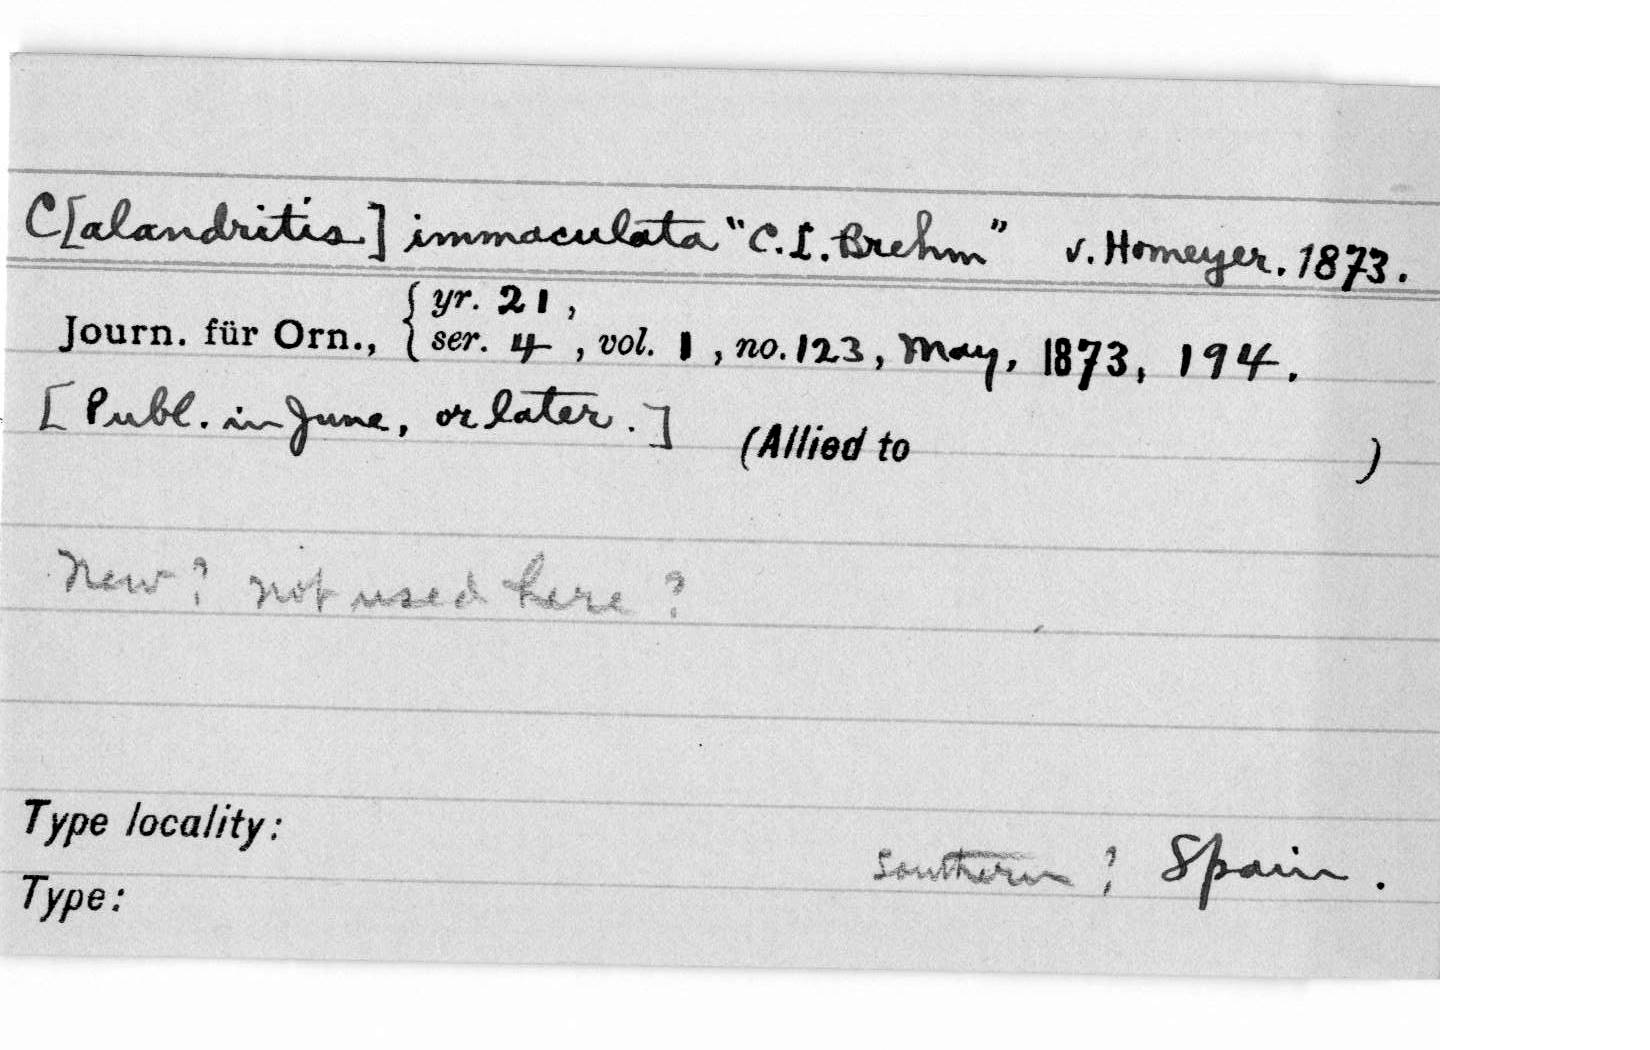 C[alandritis] immaculata "C.L.Brehm" v. Homeyer. 1873.
Journ. für Orn., { yr. 21,
ser. 4, vol. 1, no. 123, May, 1873, 194.
[Publ. in June, or later.]
(Allied to )
New? not used here?
Type locality:
Southern? Spain.
Type: